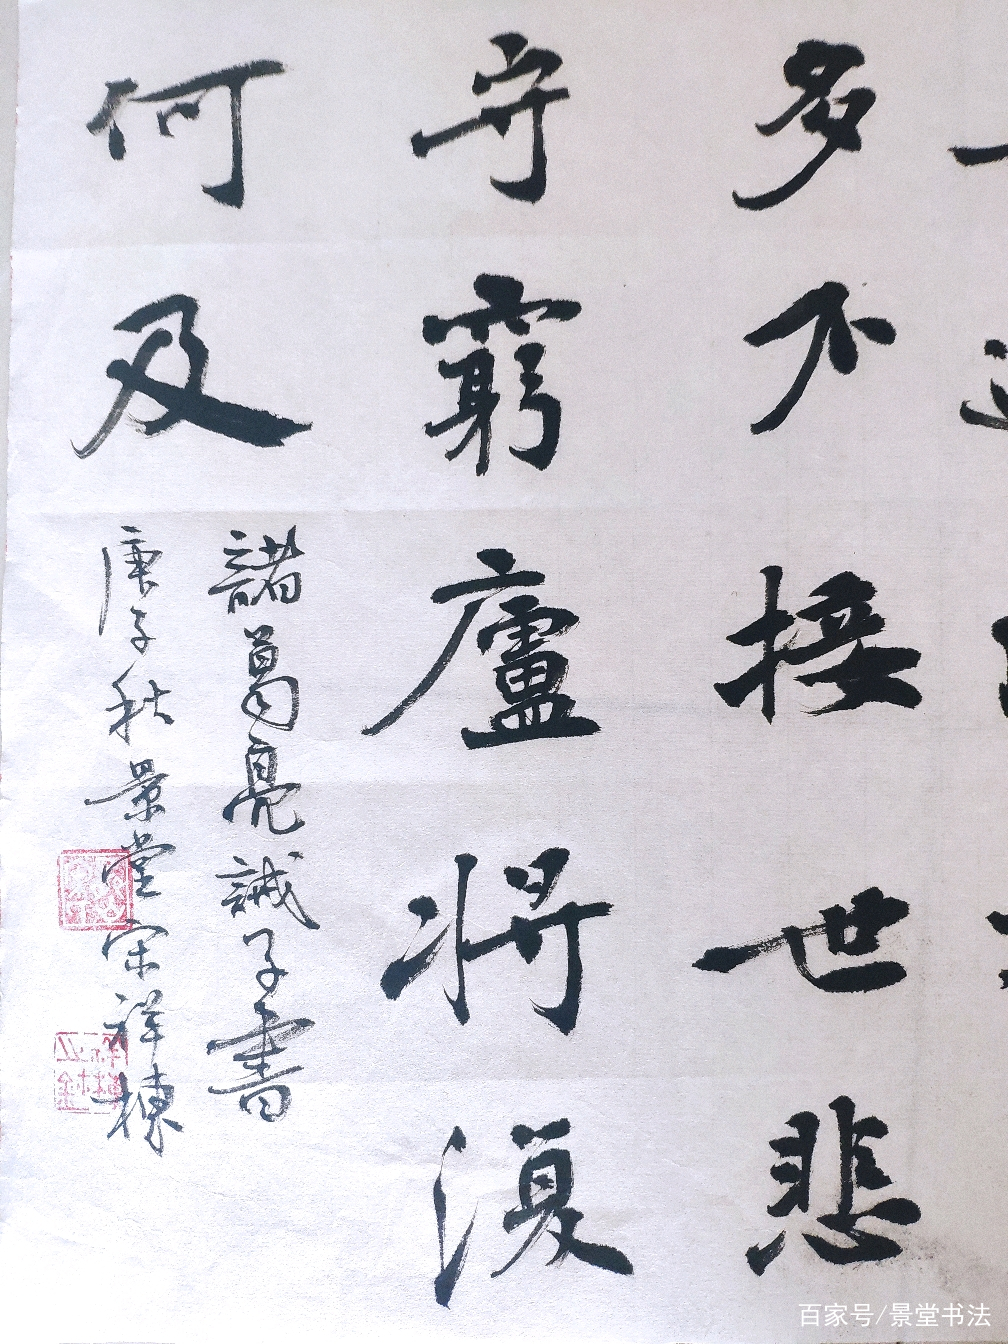 多不接世悲
守窮廬將復
何及
諸葛亮誡子書
庚子秋景堂宋祥棟
百家号/景堂书法